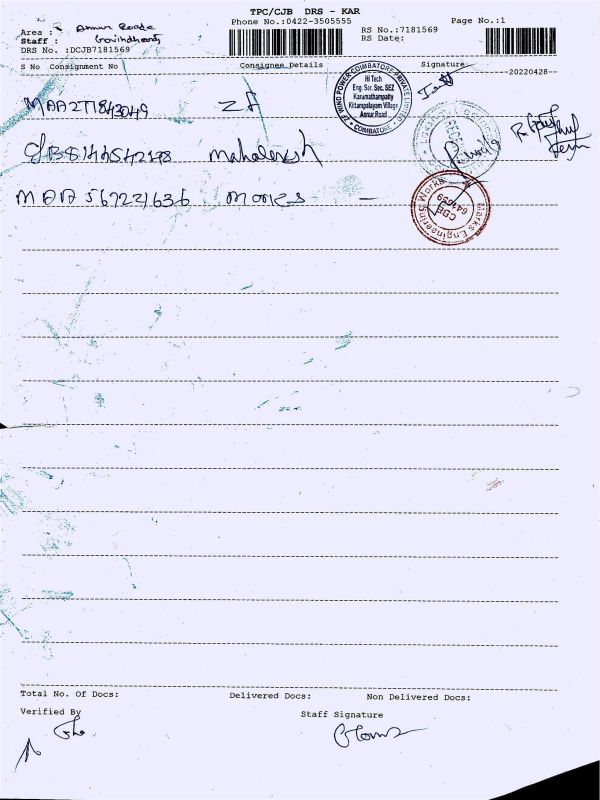 TPC/CJB DRS - KAR
Phone No.:0422-3505555
Page No.:1
Area : Annur Roade
Staff : Govindharaj
DRS No. :DCJB7181569
RS No.:7181569
RS Date:
S No Consignment No Consignee Details Signature 20220428
MAA271843049 ZF
ZF WIND POWER COIMBATORE PRIVATE LIMITED
Hi Tech
Eng. Ser. Sec. SEZ
Karumathampatty
Kittampalayam Village
Annur Road
COIMBATORE
CJB8144542148
MAA567221636
Marks Engineering Works
CBE
641659
Total No. Of Docs: Delivered Docs: Non Delivered Docs:
Verified By Staff Signature